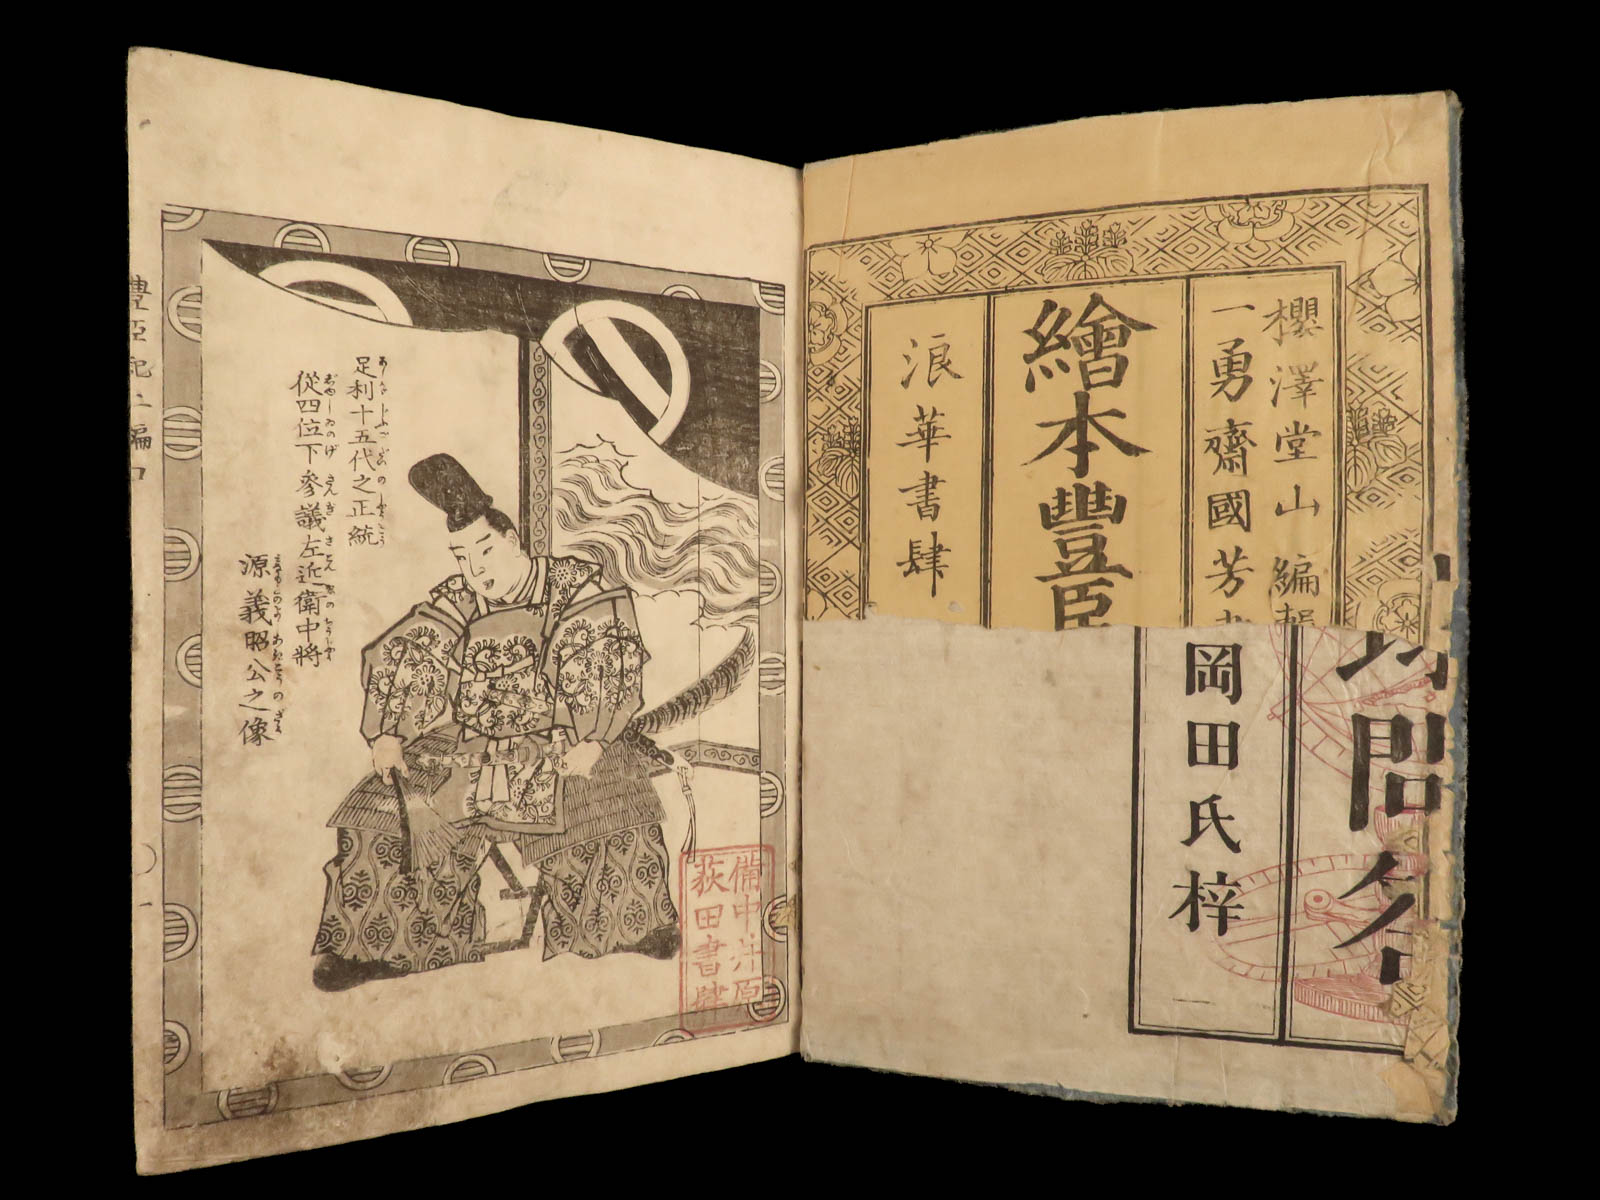 櫻澤堂山 編輯
一勇齋國芳
繪本豐臣
浪華書肆
問
岡田氏梓
足利十五代之正統
從四位下參議左近衛中將
源義昭公之像
備中井原
荻田書肆
豐臣紀
編